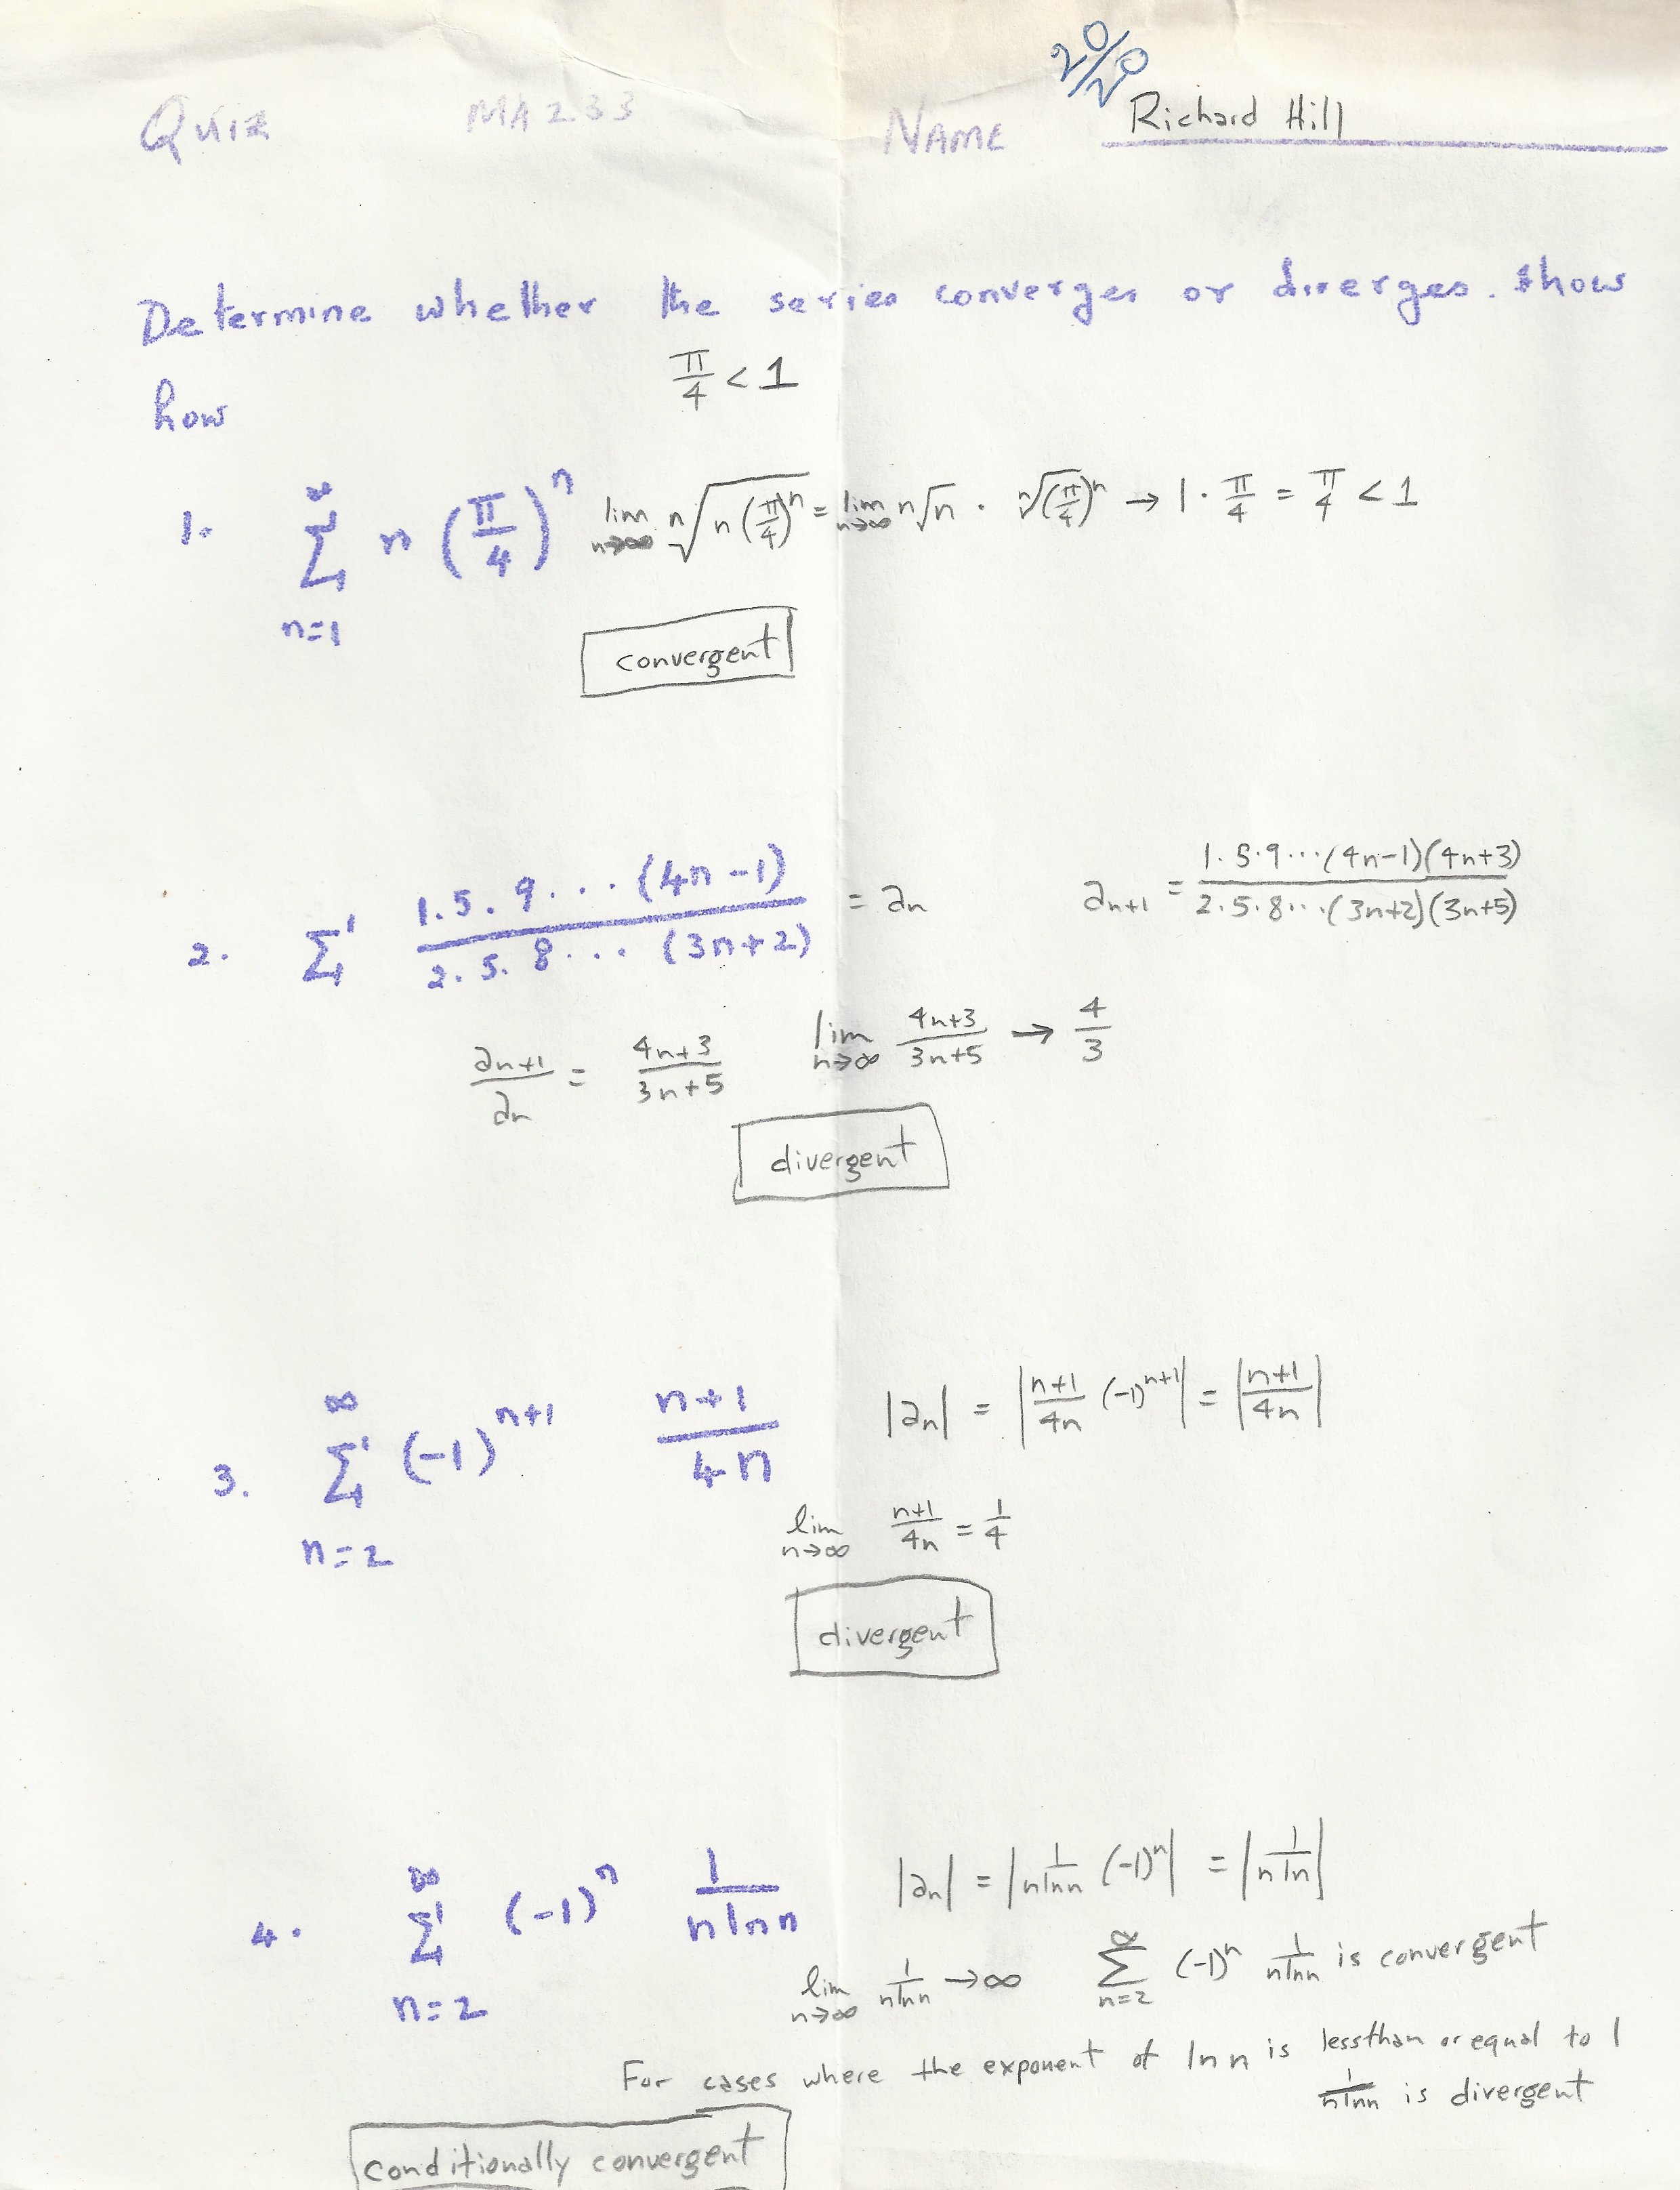 20/20
Quiz MA233 NAME Richard Hill
Determine whether the series converges or diverges. Show
π/4 < 1
how
1. ∞ Σ n=1 n (π/4)^n lim n→∞ ⁿ√(n(π/4)^n) = lim n→∞ ⁿ√n · ⁿ√(π/4)^n → 1 · π/4 = π/4 < 1
convergent
2. Σ 1.5.9...(4n-1) / 2.5.8...(3n+2) = an an+1 = 1·5·9···(4n-1)(4n+3) / 2·5·8···(3n+2)(3n+5)
an+1/an = 4n+3 / 3n+5 lim n→∞ 4n+3 / 3n+5 → 4/3
divergent
3. ∞ Σ n=2 (-1)^n+1 n+1 / 4n |an| = |n+1 / 4n (-1)^n+1| = |n+1 / 4n|
lim n→∞ n+1 / 4n = 1/4
divergent
4. ∞ Σ n=2 (-1)^n 1 / n ln n |an| = |1 / n ln n (-1)^n| = |1 / n ln|
lim n→∞ 1 / n ln n → ∞ ∞ Σ n=2 (-1)^n 1 / n ln n is convergent
For cases where the exponent of ln n is less than or equal to 1
1 / n ln n is divergent
conditionally convergent